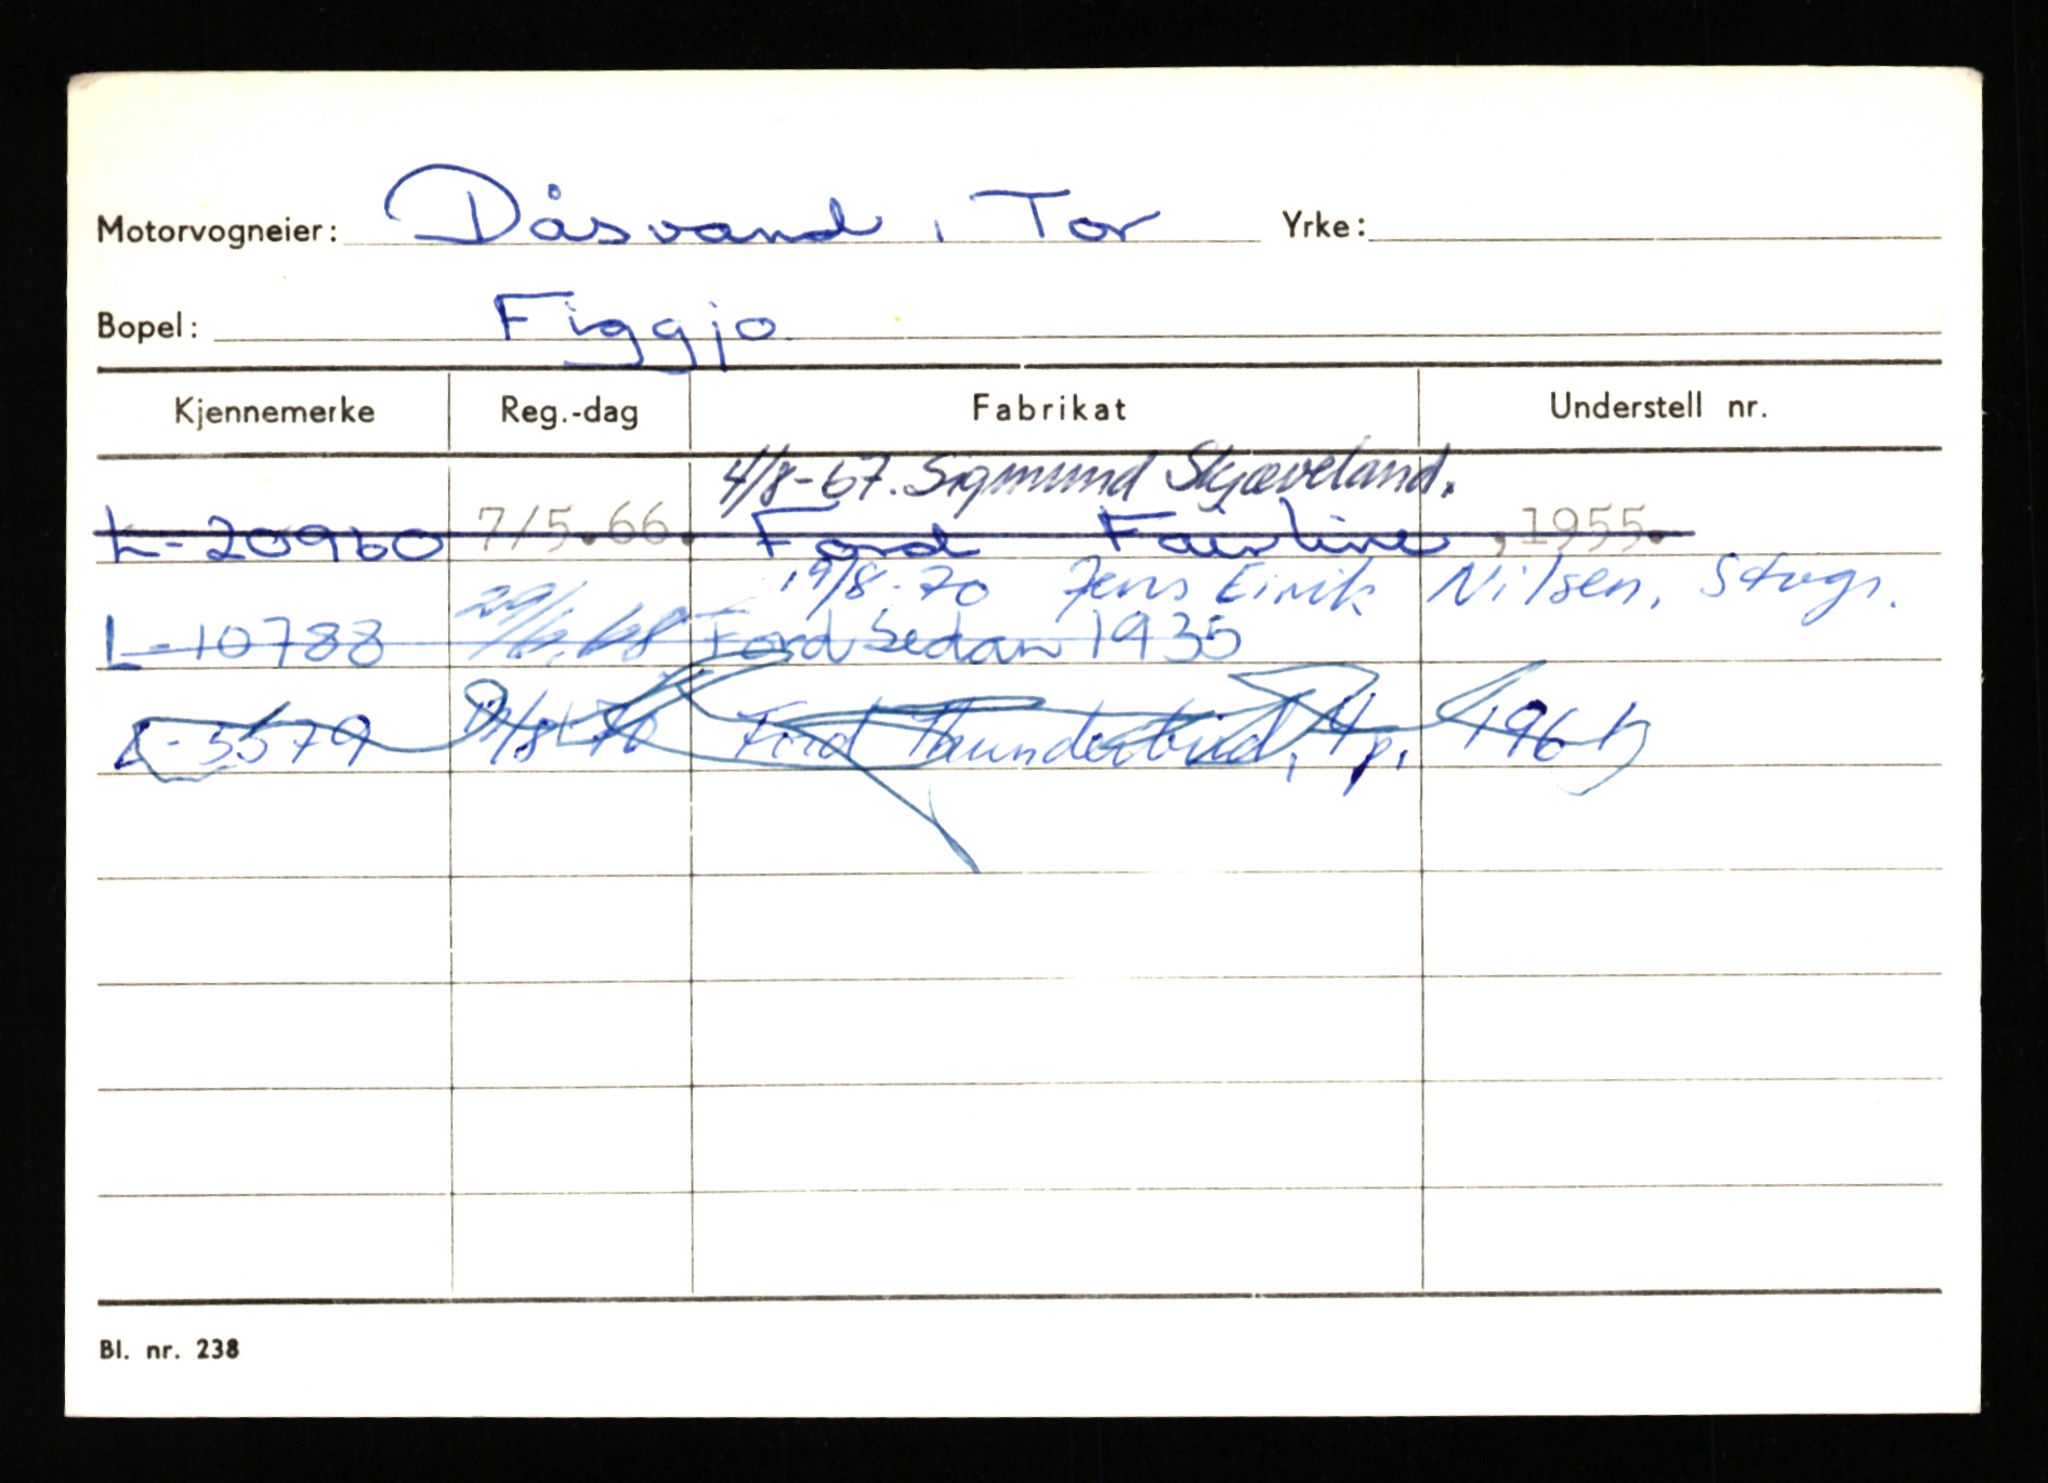 Motorvogneier: Dåsvand, Tor Yrke:
Bopel: Figgjo
Kjennemerke Reg.-dag Fabrikat Understell nr.
4/8-67. Sigmund Skjæveland.
L-20960 7/5.66. Ford Fairline, 1955.
19/8-70 Jens Eirik Nilsen, Stvgr.
L-10788 68 Ford Sedan 1935
L-5579 /8 70 Ford Thunderbird, 4 p. 1961
Bl. nr. 238